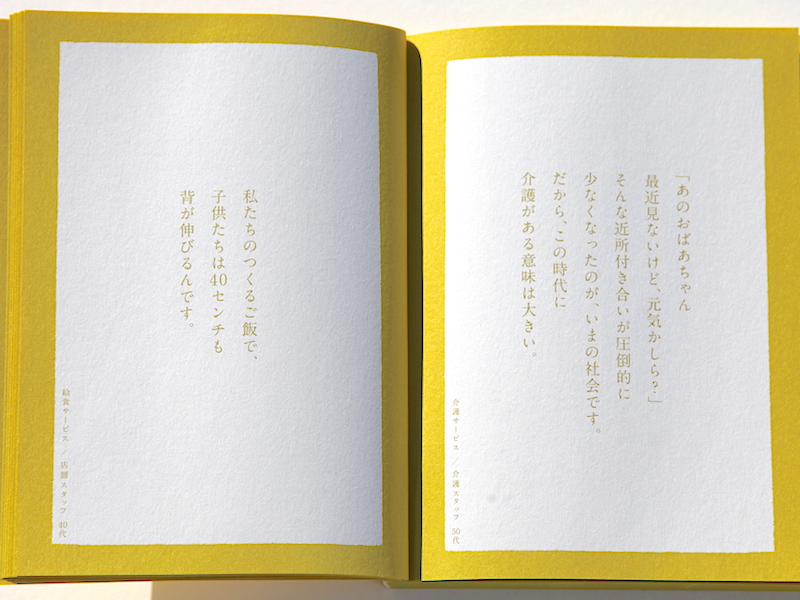 私たちのつくるご飯で、
子供たちは40センチも
背が伸びるんです。
給食サービス／店舗スタッフ 40代
「あのおばあちゃん
最近見ないけど、元気かしら？」
そんな近所付き合いが圧倒的に
少なくなったのが、いまの社会です。
だから、この時代に
介護がある意味は大きい。
介護サービス／介護スタッフ 50代